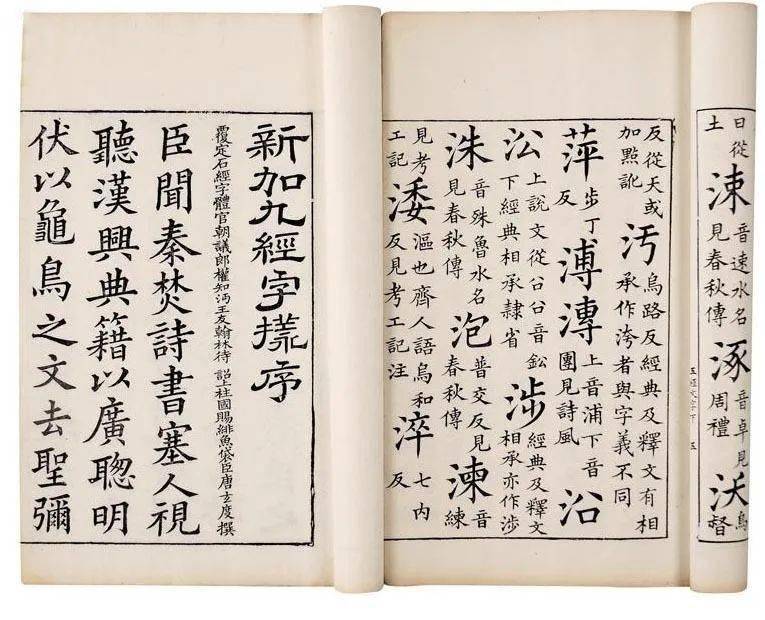 日從土涑音速水名見春秋傳涿音卓見周禮沃烏督
五經文字下 五
反從天或加點訛汚烏路反經典及釋文有相承作洿者與字義不同
萍步丁反溥漙上音浦下音團見詩風沿
㳂上說文從㕣㕣音鈆下經典相承隷省涉經典及釋文相承亦作渉
洙音殊魯水名見春秋傳泡普交反見春秋傳湅音練
見考工記涹漚也齊人語烏和反見考工記注淬七内反
新加九經字㨾序
覆定石經字體官朝議郎權知沔王友翰林待 詔上柱國賜緋魚袋臣唐玄度撰
臣聞秦焚詩書塞人視
聽漢興典籍以廣聰明
伏以龜鳥之文去聖彌